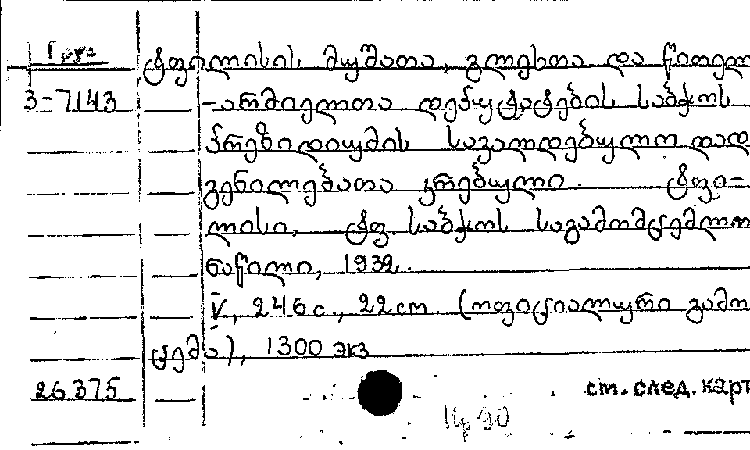 Груз
ტფილისის მუშათა, გლეხთა და წითელ
3-7143 -არმიელთა დეპუტატების საბჭოს
პრეზიდიუმის სავალდებულო დად
გენილებათა კრებული. ტფი-
ლისი, ტფ. საბჭოს საგამომცემლო
ნაწილი, 1932.
V, 246 с., 22 cm (ოფიციალური გამო
ცემა), 1300 экз
26375 см. след. карт